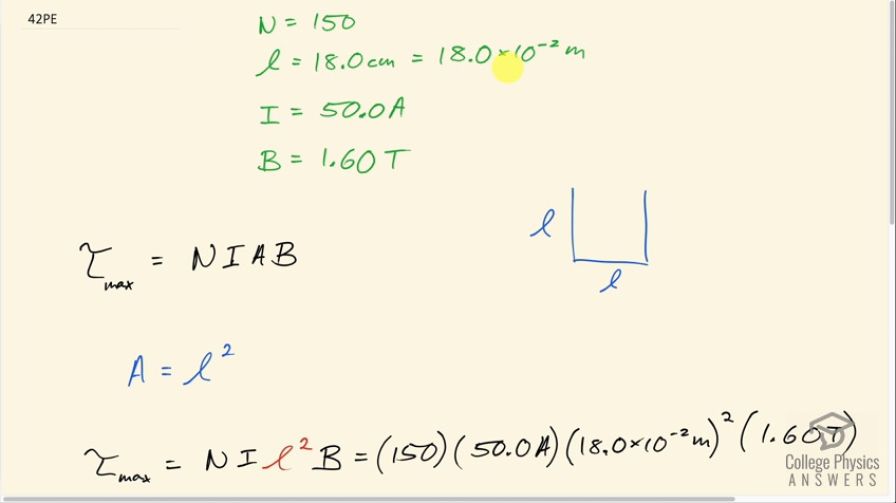 42PE
N = 150
l = 18.0 cm = 18.0 × 10⁻² m
I = 50.0 A
B = 1.60 T
l
τmax = NIAB
l
A = l²
τmax = NIl²B = (150)(50.0 A)(18.0×10⁻² m)²(1.60 T)
College Physics
ANSWERS